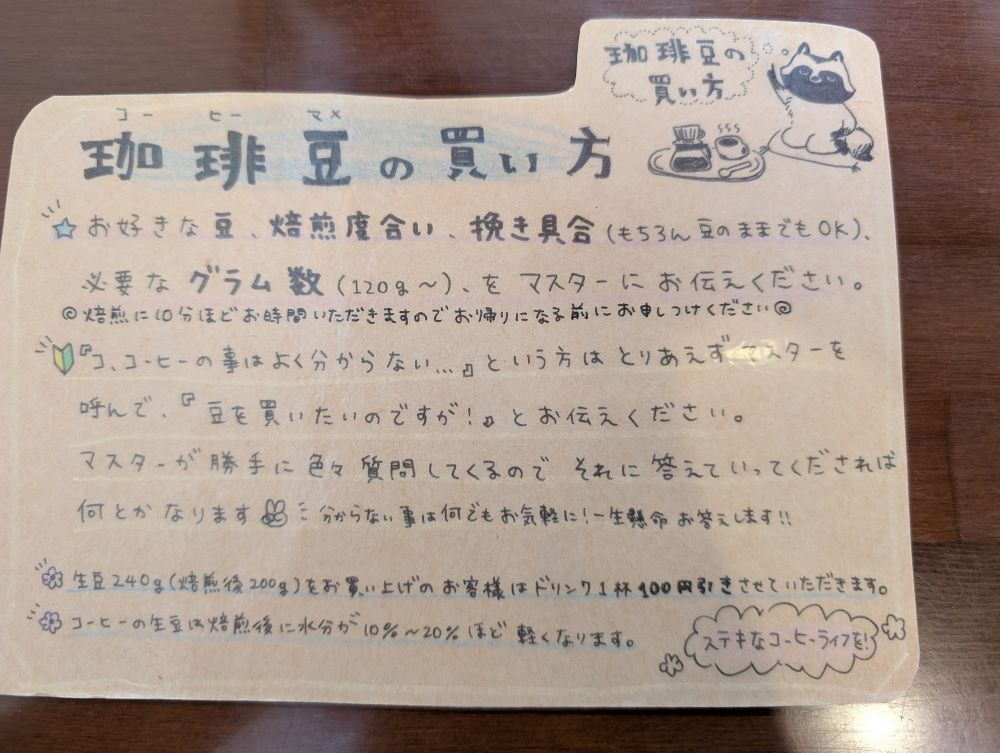 珈琲豆の
買い方
コー ヒー マメ
珈琲豆の買い方
☆お好きな豆、焙煎度合い、挽き具合(もちろん豆のままでもOK)、
必要なグラム数(120g〜)、をマスターにお伝えください。
◎焙煎に10分ほどお時間いただきますのでお帰りになる前にお申しつけください◎
『コ、コーヒーの事はよく分からない...』という方はとりあえずマスターを
呼んで、『豆を買いたいのですが!』とお伝えください。
マスターが勝手に色々質問してくるのでそれに答えていってくだされば
何とかなります 分からない事は何でもお気軽に!一生懸命お答えします!!
生豆240g(焙煎後200g)をお買い上げのお客様はドリンク1杯100円引きさせていただきます。
コーヒーの生豆は焙煎後に水分が10%〜20%ほど軽くなります。
ステキなコーヒーライフを!